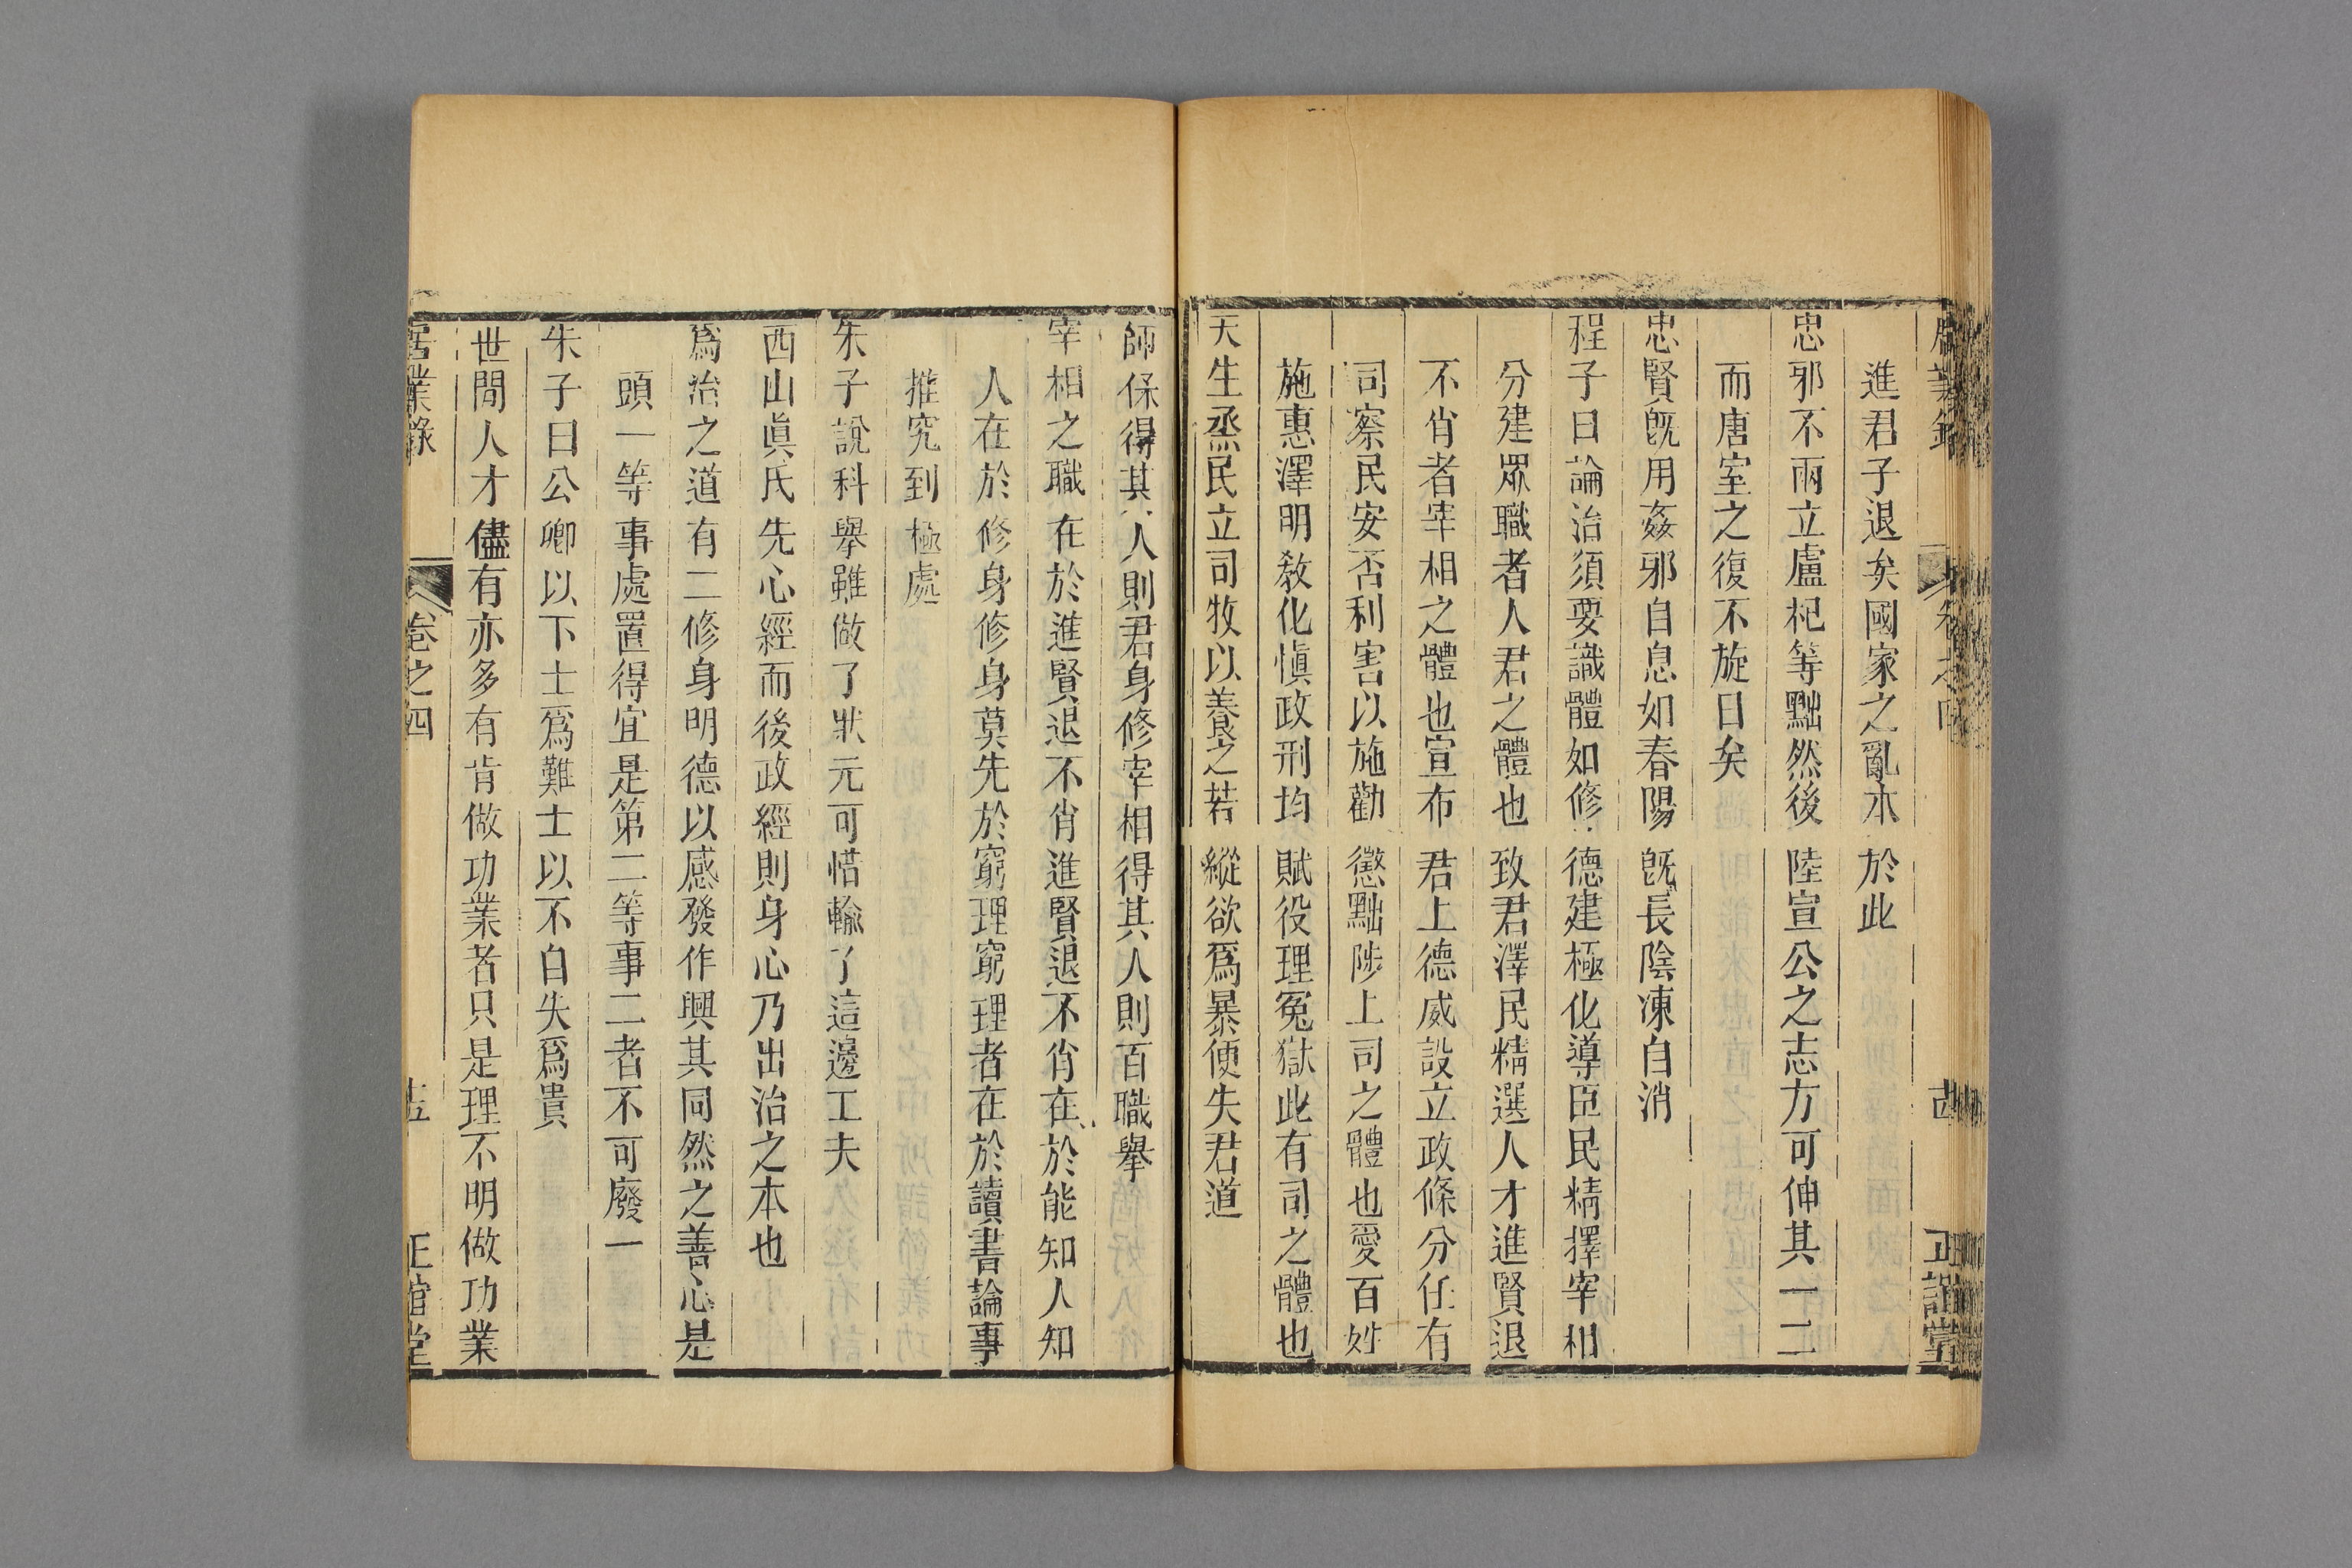 居業錄 卷之四 古 正誼堂
進君子退矣國家之亂本於此
忠邪不兩立盧杞等黜然後陸宣公之志方可伸其一二
而唐室之復不旋日矣
忠賢旣用姦邪自息如春陽旣長陰凍自消
程子曰論治須要識體如修德建極化導臣民精擇宰相
分建眾職者人君之體也致君澤民精選人才進賢退
不肖者宰相之體也宣布君上德威設立政條分任有
司察民安否利害以施勸懲黜陟上司之體也愛百姓
施惠澤明敎化愼政刑均賦役理冤獄此有司之體也
天生烝民立司牧以養之若縱欲爲暴便失君道
師保得其人則君身修宰相得其人則百職舉
宰相之職在於進賢退不肖進賢退不肖在於能知人知
人在於修身修身莫先於窮理窮理者在於讀書論事
推究到極處
朱子說科舉雖做了狀元可惜輸了這邊工夫
西山眞氏先心經而後政經則身心乃出治之本也
爲治之道有二修身明德以感發作興其同然之善心是
頭一等事處置得宜是第二等事二者不可廢一
朱子曰公卿以下士爲難士以不自失爲貴
世間人才儘有亦多有肯做功業者只是理不明做功業
居業錄 卷之四 正誼堂